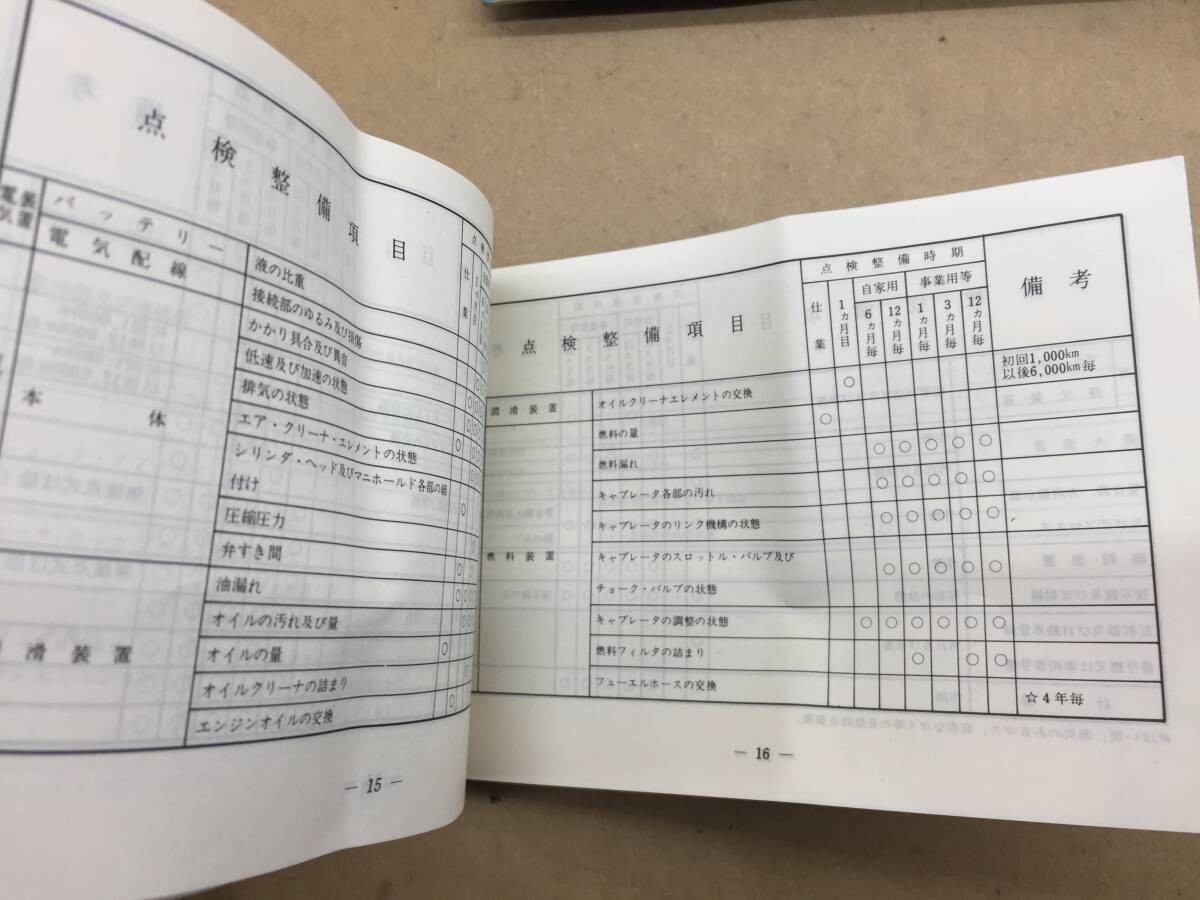 点検整備項目
点検
仕業
電気装置
バッテリー
液の比重
電気配線
接続部のゆるみ及び損傷
本体
かかり具合及び異音
低速及び加速の状態
排気の状態
エア・クリーナ・エレメントの状態
シリンダ・ヘッド及びマニホールド各部の締
付け
圧縮圧力
弁すき間
油漏れ
滑装置
オイルの汚れ及び量
オイルの量
オイルクリーナの詰まり
エンジンオイルの交換
— 15 —
点検整備項目
点検整備時期
備考
仕業
1ヵ月目
自家用
事業用等
6ヵ月毎
12ヵ月毎
1ヵ月毎
3ヵ月毎
12ヵ月毎
潤滑装置
オイルクリーナエレメントの交換
○
初回1,000km
以後6,000km毎
燃料装置
燃料の量
○
燃料漏れ
○ ○ ○ ○ ○
キャブレータ各部の汚れ
○ ○ ○ ○ ○
キャブレータのリンク機構の状態
○ ○ ○ ○ ○
キャブレータのスロットル・バルブ及び
チョーク・バルブの状態
○ ○ ○ ○ ○
キャブレータの調整の状態
○ ○ ○ ○ ○ ○
燃料フィルタの詰まり
○ ○ ○
フューエルホースの交換
☆4年毎
— 16 —